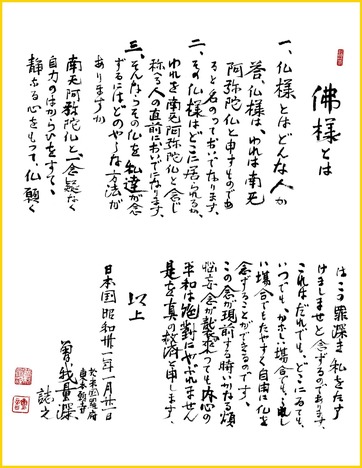 佛様とは
一、仏様とはどんな人か
答、仏様は、われは南无
阿弥陀仏と申すものであ
ると名のっておいでなります、
二、その仏様はどこに居られるか、
われを南无阿弥陀仏と念じ
称へる人の直前においでになります、
三、そんならその仏を私達が念
ずるにはどのやうな方法が
ありますか
南无阿弥陀仏と一念疑なく
自力のはからひをすてて、
静かなる心をもって、仏願く
はこの罪深き私をたす
けましませと念ずるのであります、
これはだれでも、どこにゐても、
いつでも、かなしい場合でも、嬉し
い場合でもたやすく自由に仏を
念ずることができるのです、
この念が現前する時いかなる煩
悩妄念が襲来しても内心の
平和は絶対にやぶれません
是を真の救済と申します、
以上
日本国昭和卅一年一月廿一日
於米国羅府
東本願寺
曽我量深
誌之